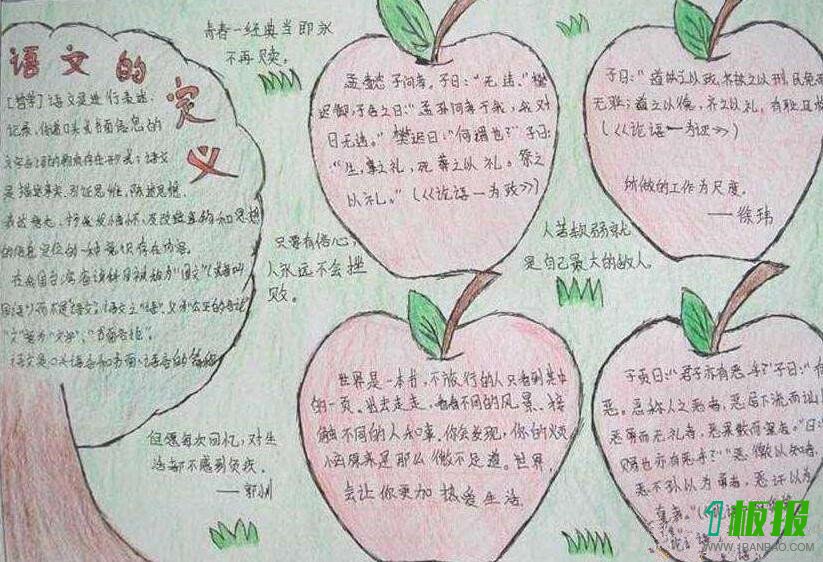 语文的定义
[哲学]语文是进行表述、
记录、传递口头或书面信息的
文字言语的物质存在形式；语文
是描述事实、引证思维、陈述思想、
的信息定位的一种意识存在内容。
语文是口头语言和书面语言的
青春一经典当即永
不再赎。
孟懿子问孝。子曰：“无违。”樊
迟御，子告之曰：“孟孙问孝于我，我对
曰无违。”樊迟曰：“何谓也？”子曰：
“生，事之以礼，死葬之以礼。祭之
以礼。”（《论语一为政》）
子曰：“道
无耻；道之以德，齐之以礼，有耻且
（《论语一为政》）
所做的工作为尺度。
——徐玮
只要有信心，
人永远不会挫
败。
人苦软弱就
是自己最大的敌人。
世界是一本书，不旅行的人只看到其中
的一页。出去走走，看看不同的风景、接
触不同的人和事，你会发现，你的烦
恼原来是那么微不足道。世界，
会让你更加热爱生活
但愿每次回忆，对生
活都不感到负疚。
——郭小川
子贡曰：“君子亦有恶乎？”子曰：“有
恶。恶称人之恶者，恶居下流而讪
恶勇而无礼者，恶果敢而窒者。”曰：
赐也亦有恶乎？”“恶徼以知者，
恶不孙以为勇者，恶讦以为
直者。”
1板报
WWW.1BANBAO.COM